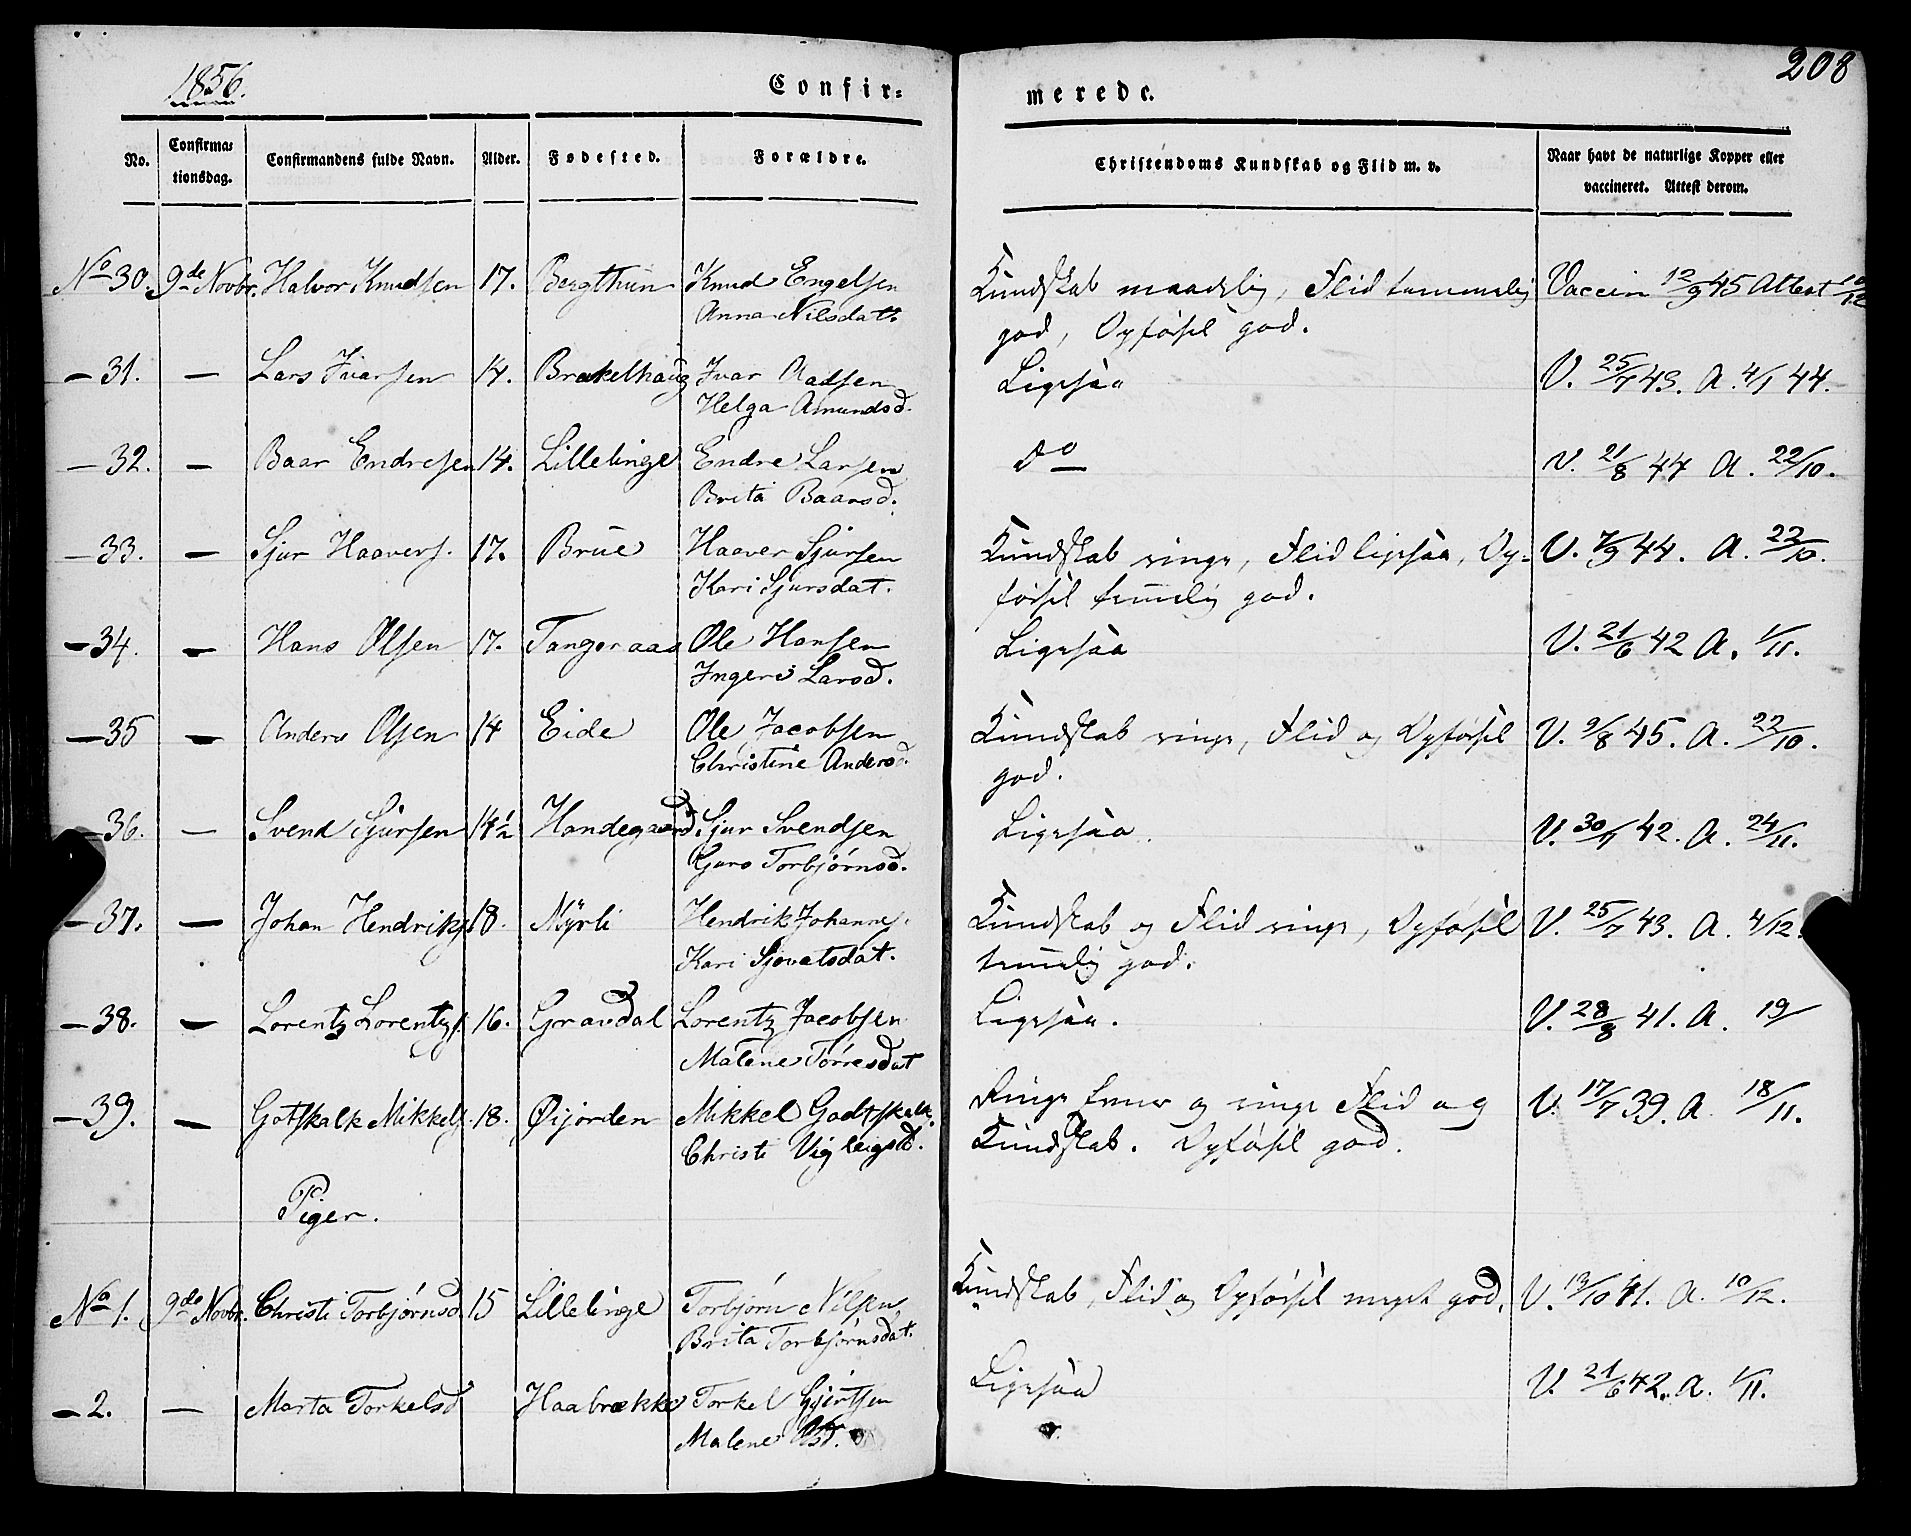 1856.
Confir-
No. Confirmationsdag. Confirmandens fulde Navn. Alder. Fødested. Forældre.
No 30. 9de Novbr. Halvor Knudsen 17. Bergthun Knud Engelsen
Anna Nilsdat.
— 31. — Lars Ivarsen 14. Brakelhaug Ivar Aadsen
Helga Amundsd.
— 32. — Baar Endresen 14. Lillelinge Endre Larsen
Brita Baarsd.
— 33. — Sjur Haavers. 17. Brue Haaver Sjursen
Kari Sjursdat.
— 34. — Hans Olsen 17. Tangeraas Ole Hansen
Ingeri Larsd.
— 35 — Anders Olsen 14 Eide Ole Jacobsen
Christine Andersd.
— 36. — Svend Sjursen 14½ Handegaard Sjur Svendsen
Guro Torbjørnsd.
— 37. — Johan Hendriks. 18. Myrli Hendrik Johannes.
Kari Sjovatsdat.
— 38. — Lorentz Lorentzs. 16. Gravdal Lorentz Jacobsen
Malene Torresdat
— 39. — Gotskalk Mikkels. 18. Øijorden Mikkel Godtskalk.
Christi Vigleigsd.
Piger.
No 1. 9de Novbr. Christi Torbjørnsd. 15 Lillelinge Torbjørn Nilsen
Brita Torbjørnsdat.
— 2. — Marta Torkelsd Haabrække Torkel Gjertsen
Malene Olsd.
208
merede.
Christendoms Kundskab og Flid m. v. Naar havt de naturlige Kopper eller
vaccineret. Attest derom.
Kundskab maadelig, Flid temmelig Vaccin 12/9 45 Attest 10/12
god, Opførsel god.
Ligesaa V. 25/7 43. A. 4/1 44.
do V. 21/8 44 A. 22/10.
Kundskab ringe, Flid ligesaa, Op- V. 7/9 44. A. 23/10.
førsel temelig god.
Ligesaa V. 21/6 42 A. 1/11.
Kundskab ringe, Flid og Opførsel V. 9/8 45. A. 22/10.
god.
Ligesaa. V. 30/7 42. A. 24/11.
Kundskab og Flid ringe, Opførsel V. 25/7 43. A. 4/12.
temelig god.
Ligesaa. V. 28/8 41. A. 19/
Ringe Evner og ringe Flid og V. 17/7 39. A. 18/11.
Kundskab. Opførsel god.
Kundskab, Flid og Opførsel meget god. V. 13/10 41. A. 10/12.
Ligesaa V. 21/6 42. A. 1/11.